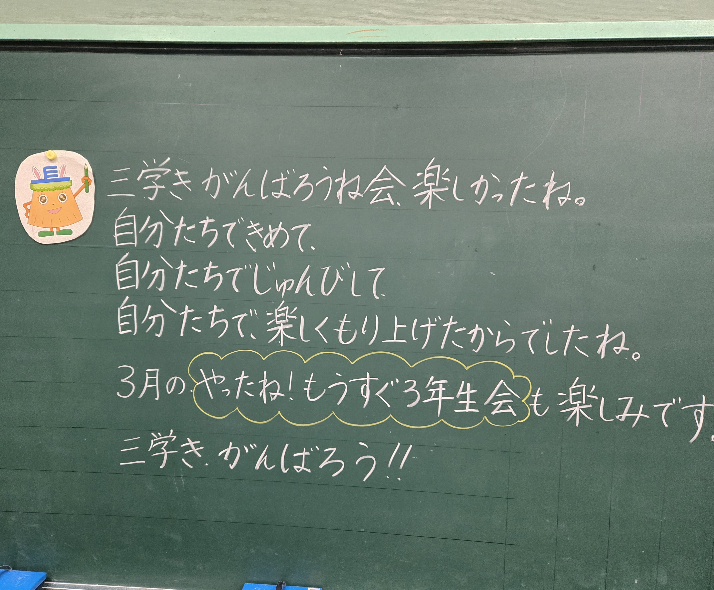 三学き がんばろうね会、楽しかったね。
自分たちできめて、
自分たちでじゅんびして
自分たちで、楽しくもり上げたからでしたね。
3月の やったね！もうすぐ3年生会も楽しみです。
三学き、がんばろう！！